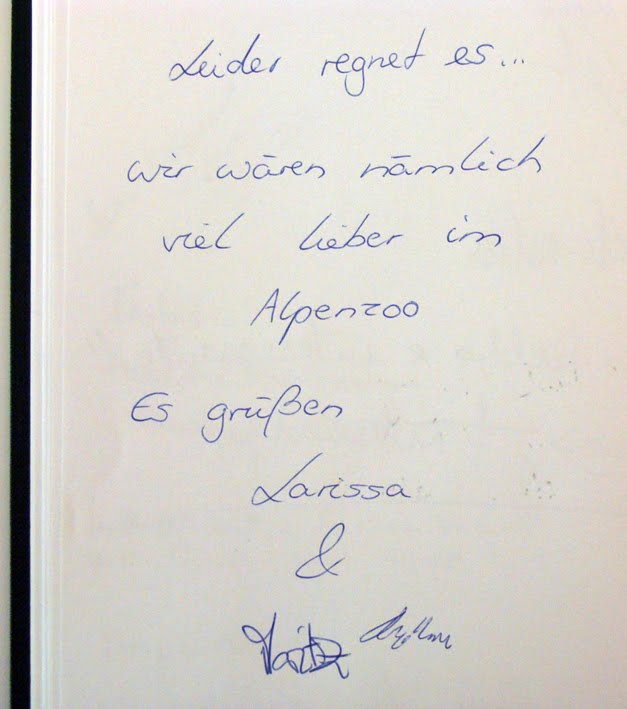 Leider regnet es...
wir wären nämlich
viel lieber im
Alpenzoo
Es grüßen
Larissa
&
Moritz